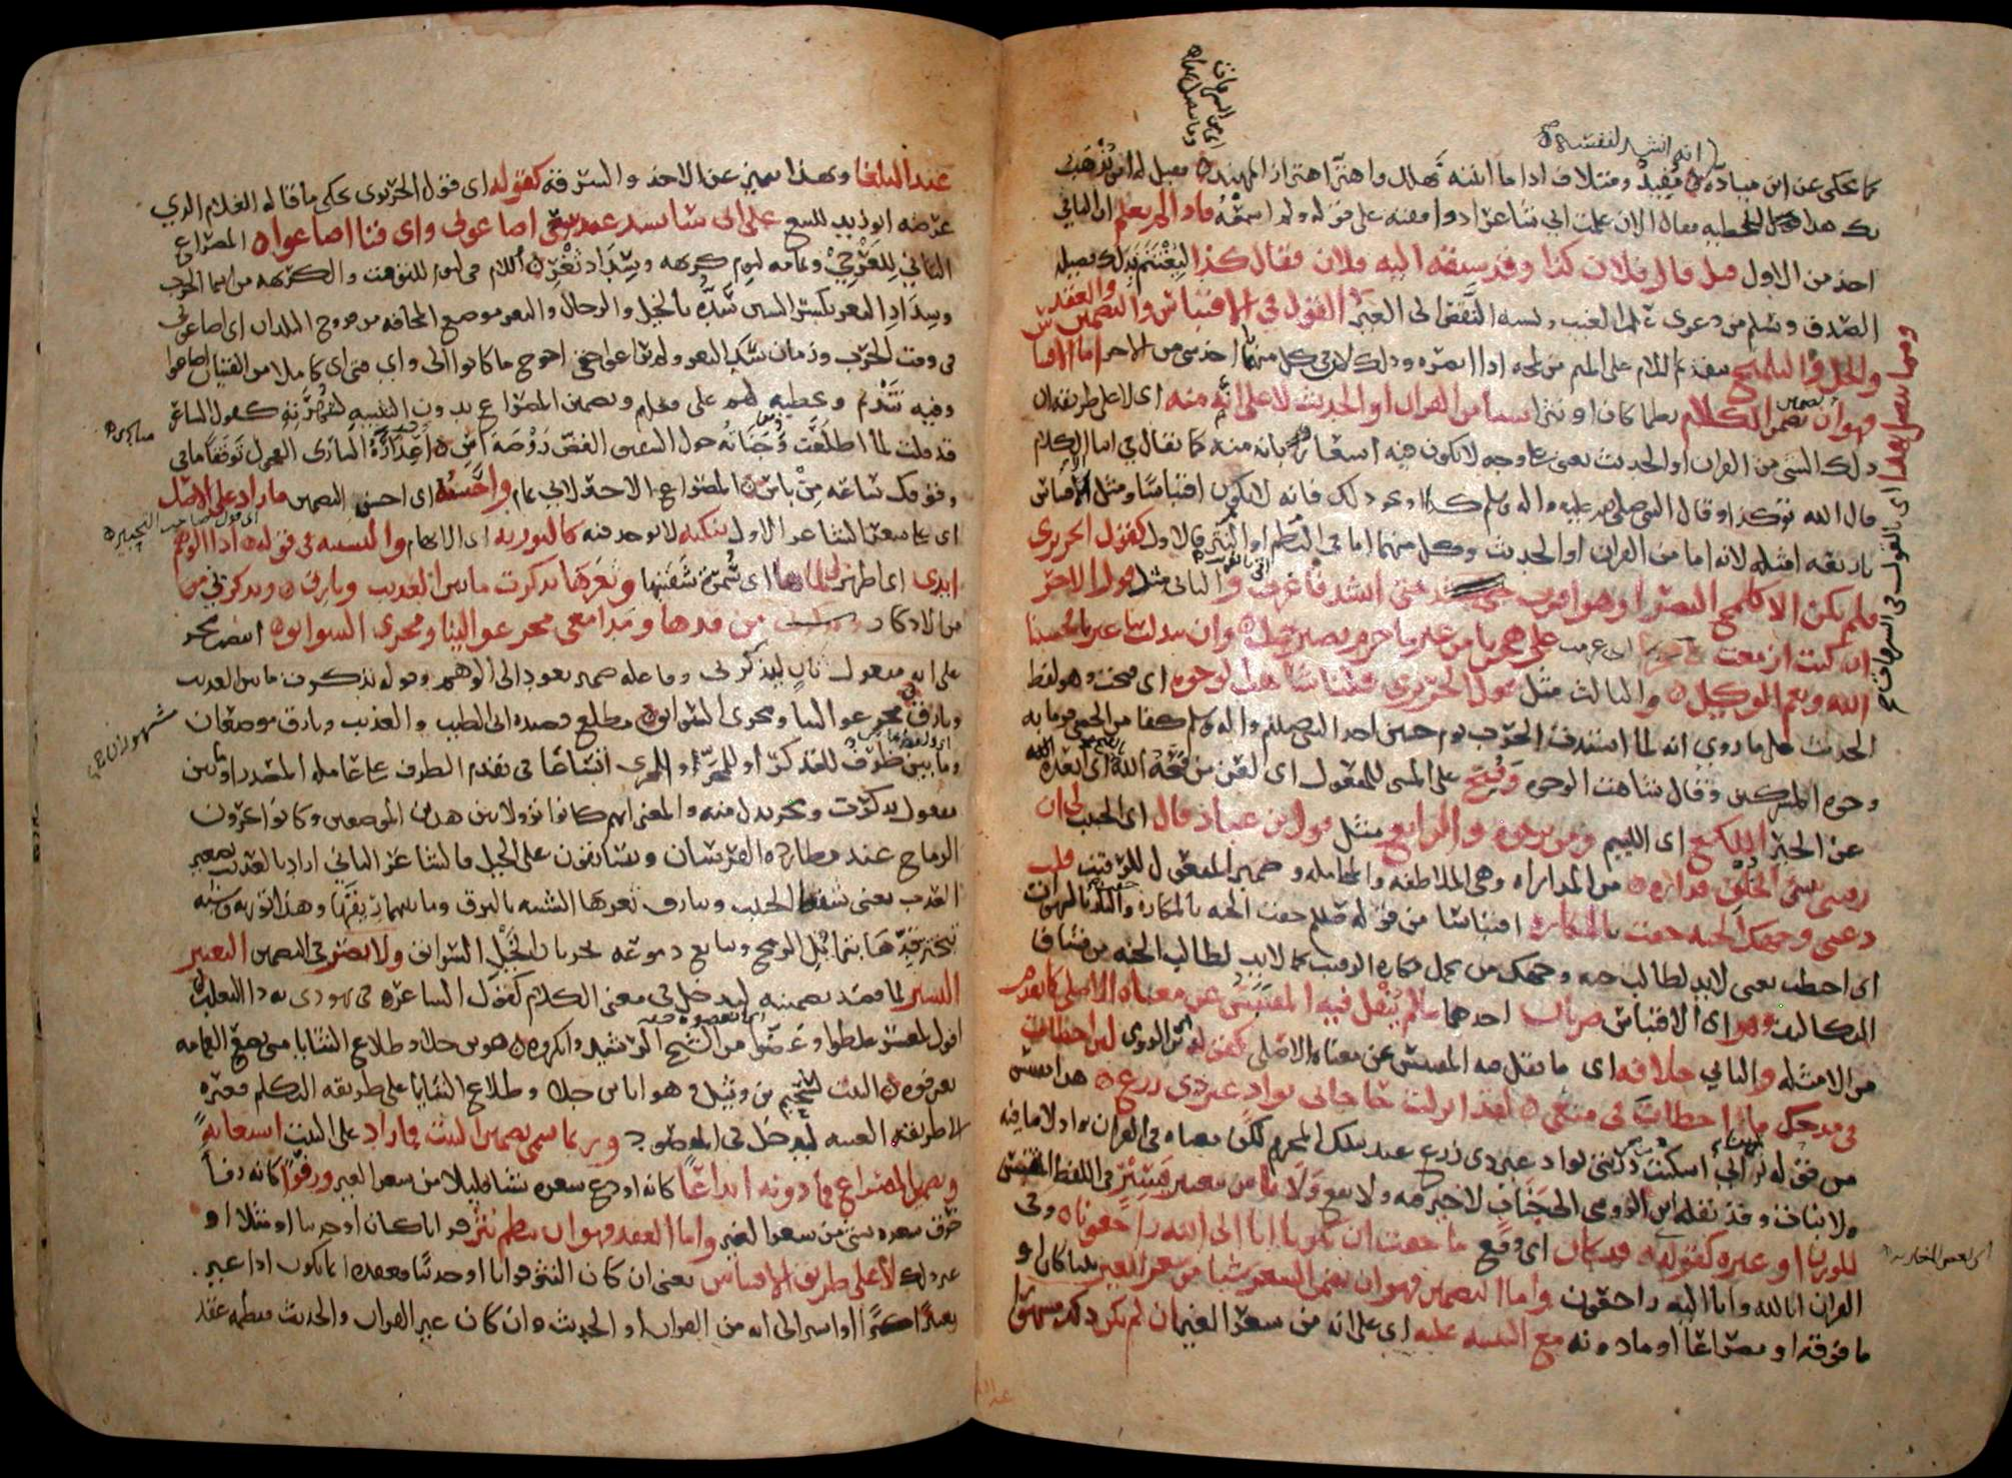 انه انشد لنفسه
كما يحكى عن ابن ميادة مفيد ومتلاف اذا ما اتيته تهلل واهتز اهتزاز المهند فقيل له اين يذهب
بك هذا للحطيه فقال الان علمت اني شاعر اذ وافقته على قوله ولم اسمعه فاذا لم يعلم ان الثاني
اخذ من الاول قيل قال فلان كذا وقد سبقه اليه فلان فقال كذا ليغتنم بذلك فضيلة
الصدق ويسلم من دعوى علم الغيب ونسبه النقص الى الغير القول في الاقتباس والتضمين والعقد
والحل والتلميح بتقديم اللام على الميم من لمحه اذا ابصره وذلك لان في كل منها اخذ شي من الاخر اما الاقتباس
فهو ان يضمن الكلام نظما كان او نثرا شيا من القران او الحديث لا على انه منه اي لا على طريقة ان
ذلك الشي من القران او الحديث يعني على وجه لا يكون فيه اشعار بانه منه كما يقال في اثنا الكلام
قال الله تعالى كذا او قال النبي صلى الله عليه واله وسلم كذا ونحو ذلك فانه لا يكون اقتباسا ومثل للاقتباس
باربعة امثله لانه اما من القران او الحديث وكل منهما اما في النظم او النثر فالاول كقول الحريري
فلم يكن الا كلمح البصر او هو اقرب حتى انشد فاغرب والثاني مثل قول الاخر
ان كنت ازمعت اي عزمت على هجرنا من غير ما جرم فصبر جميل وان تبدلت بنا غيرنا فحسبنا
الله ونعم الوكيل والثالث مثل قول الحريري قلنا شاهت الوجوه اي قبحت وهو لفظ
الحديث على ما روي انه لما اشتدت الحرب يوم حنين اخذ النبي صلعم واله وسلم كفا من الحصى فرما به
وجوه المشركين وقال شاهت الوجوه وقبح على المبني للمفعول اي لعن من قبحه الله اي ابعده
عن الخير اللكع اي اللييم ومن يرجوه والرابع مثل قول ابن عباد قال اي الحبيب لي ان
رقيبي سيئ الخلق فداره من المداراه وهي الملاطفه والمجامله وضمير المفعول للرقيب قلت
دعني وجهك الجنه حفت بالمكاره اقتباسا من قوله صلعم حفت الجنه بالمكاره والنار بالشهوات
اي احيطت يعني لا بد لطالب جنه وجهك من تحمل مكاره الرقيب كما لا بد لطالب الجنه من مشاق
التكاليف وهو اي الاقتباس ضربان احدهما ما لم ينقل فيه المقتبس عن معناه الاصلي كما تقدم
من الامثله والثاني خلافه اي ما نقل فيه المقتبس عن معناه الاصلي كقوله اي ابن الرومي لئن اخطات
في مدحك ما اخطات في منعي لقد انزلت حاجاتي بواد غير ذي زرع هذا مقتبس
من قوله تعالى اني اسكنت من ذريتي بواد غير ذي زرع عند بيتك المحرم لكن معناه في القران واد لا ما فيه
ولا نبات وقد نقله ابن الرومي الى جناب لا خير فيه ولا نفع ولا باس بتغيير يسير في اللفظ المقتبس
للوزن او غيره كقوله قد كان اي وقع ما خفت ان يكونا انا الى الله راجعونا وفي
القران انا لله وانا اليه راجعون واما التضمين فهو ان يضمن الشعر شيا من شعر الغير بيتا كان او
ما فوقه او مصراعا او ما دونه مع التنبيه عليه اي على انه من شعر الغير ان لم يكن ذلك مشهورا
عند البلغا
عند البلغا وبهذا يتميز عن الاخذ والسرقه كقوله اي قول الحريري يحكي ما قاله الغلام الذي
عرضه ابو زيد للبيع على اني سانشد عند بيعي اضاعوني واي فتى اضاعوا المصراع
الثاني للعرجي وتمامه ليوم كريهه وسداد ثغر اللام في ليوم للتوقيت والكريهه من اسما الحرب
وسداد الثغر بكسر السين سده بالخيل والرجال والثغر موضع المخافه من فروج البلدان اي اضاعوني
في وقت الحرب وزمان سد الثغر ولم يراعوا حقي احوج ما كانوا الي واي فتى اي كاملا من الفتيان اضاعوا
وفيه تنديم وتخطيه لهم على وتضمين المصراع بدون التنبيه لشهرته كقول الشاعر
قد قلت لما اطلعت وجناته حول الشقيق الغض روضة اس اعذاره الساري العجول توقفا ما في
وقوفك ساعه من باس المصراع الاخير لابي تمام واحسنه اي احسن التضمين ما زاد على الاصل
اي على شعر الشاعر الاول بنكته لا توجد فيه كالتوريه اي الايهام والتشبيه في قوله اذا الوهم
ابدى اي اظهر لي لماها اي سمرة شفتيها وثغرها تذكرت ما بين العذيب وبارق ويذكرني من
من الاذكار من قدها ومدامعي مجر عوالينا ومجرى السوابق انتصب مجر
على انه مفعول ثان ليذكرني وفاعله ضمير يعود الى الوهم وقوله تذكرت ما بين العذيب
وبارق مجر عوالينا ومجرى السوابق مطلع قصيده ابي الطيب والعذيب وبارق موضعان
وما بين ظرف للتذكر او للمجر او المجرى اتساعا في تقديم الظرف على عامله المصدر او ما بين
مفعول تذكرت ومجر بدل منه والمعنى انهم كانوا نزولا بين هذين الموضعين وكانوا يجرون
الرماح عند مطارده الفرسان ويسابقون على الخيل فالشاعر الثاني اراد بالعذيب تصغير
العذب يعني شفه الحبيب وببارق ثغرها الشبيه بالبرق وما بينهما ريقها وهذا توريه وشبه
تبختر قدها بتمايل الرمح وتتابع دموعه بجريان الخيل السوابق ولا يضر في التضمين التغيير
اليسير لما قصد تضمينه ليدخل في معنى الكلام كقول الشاعر في يهودي به داالثعلب
اقول لمعشر غلطوا وغضوا من الشيخ الرشيد وانكروه هو ابن جلا وطلاع الثنايا متى يضع العمامه
يعرفوه البيت لسحيم بن وثيل وهو انا ابن جلا وطلاع الثنايا على طريقه التكلم فغيره
الى طريقه الغيبه ليدخل في المقصود وربما سمي تضمين البيت فما زاد على البيت استعانه
وتضمين المصراع فما دونه ايداعا كانه اودع شعره شيا قليلا من شعر الغير ورفوا كانه رفا
خرق شعره بشي من شعر الغير واما العقد فهو ان ينظم نثر قرانا كان او حديثا او مثلا او
غير ذلك لا على طريق الاقتباس يعني ان كان النثر قرانا او حديثا فعقده انما يكون اذا غير
تغييرا كثيرا او اشير الى انه من القران او الحديث وان كان غير القران والحديث فنظمه عقد